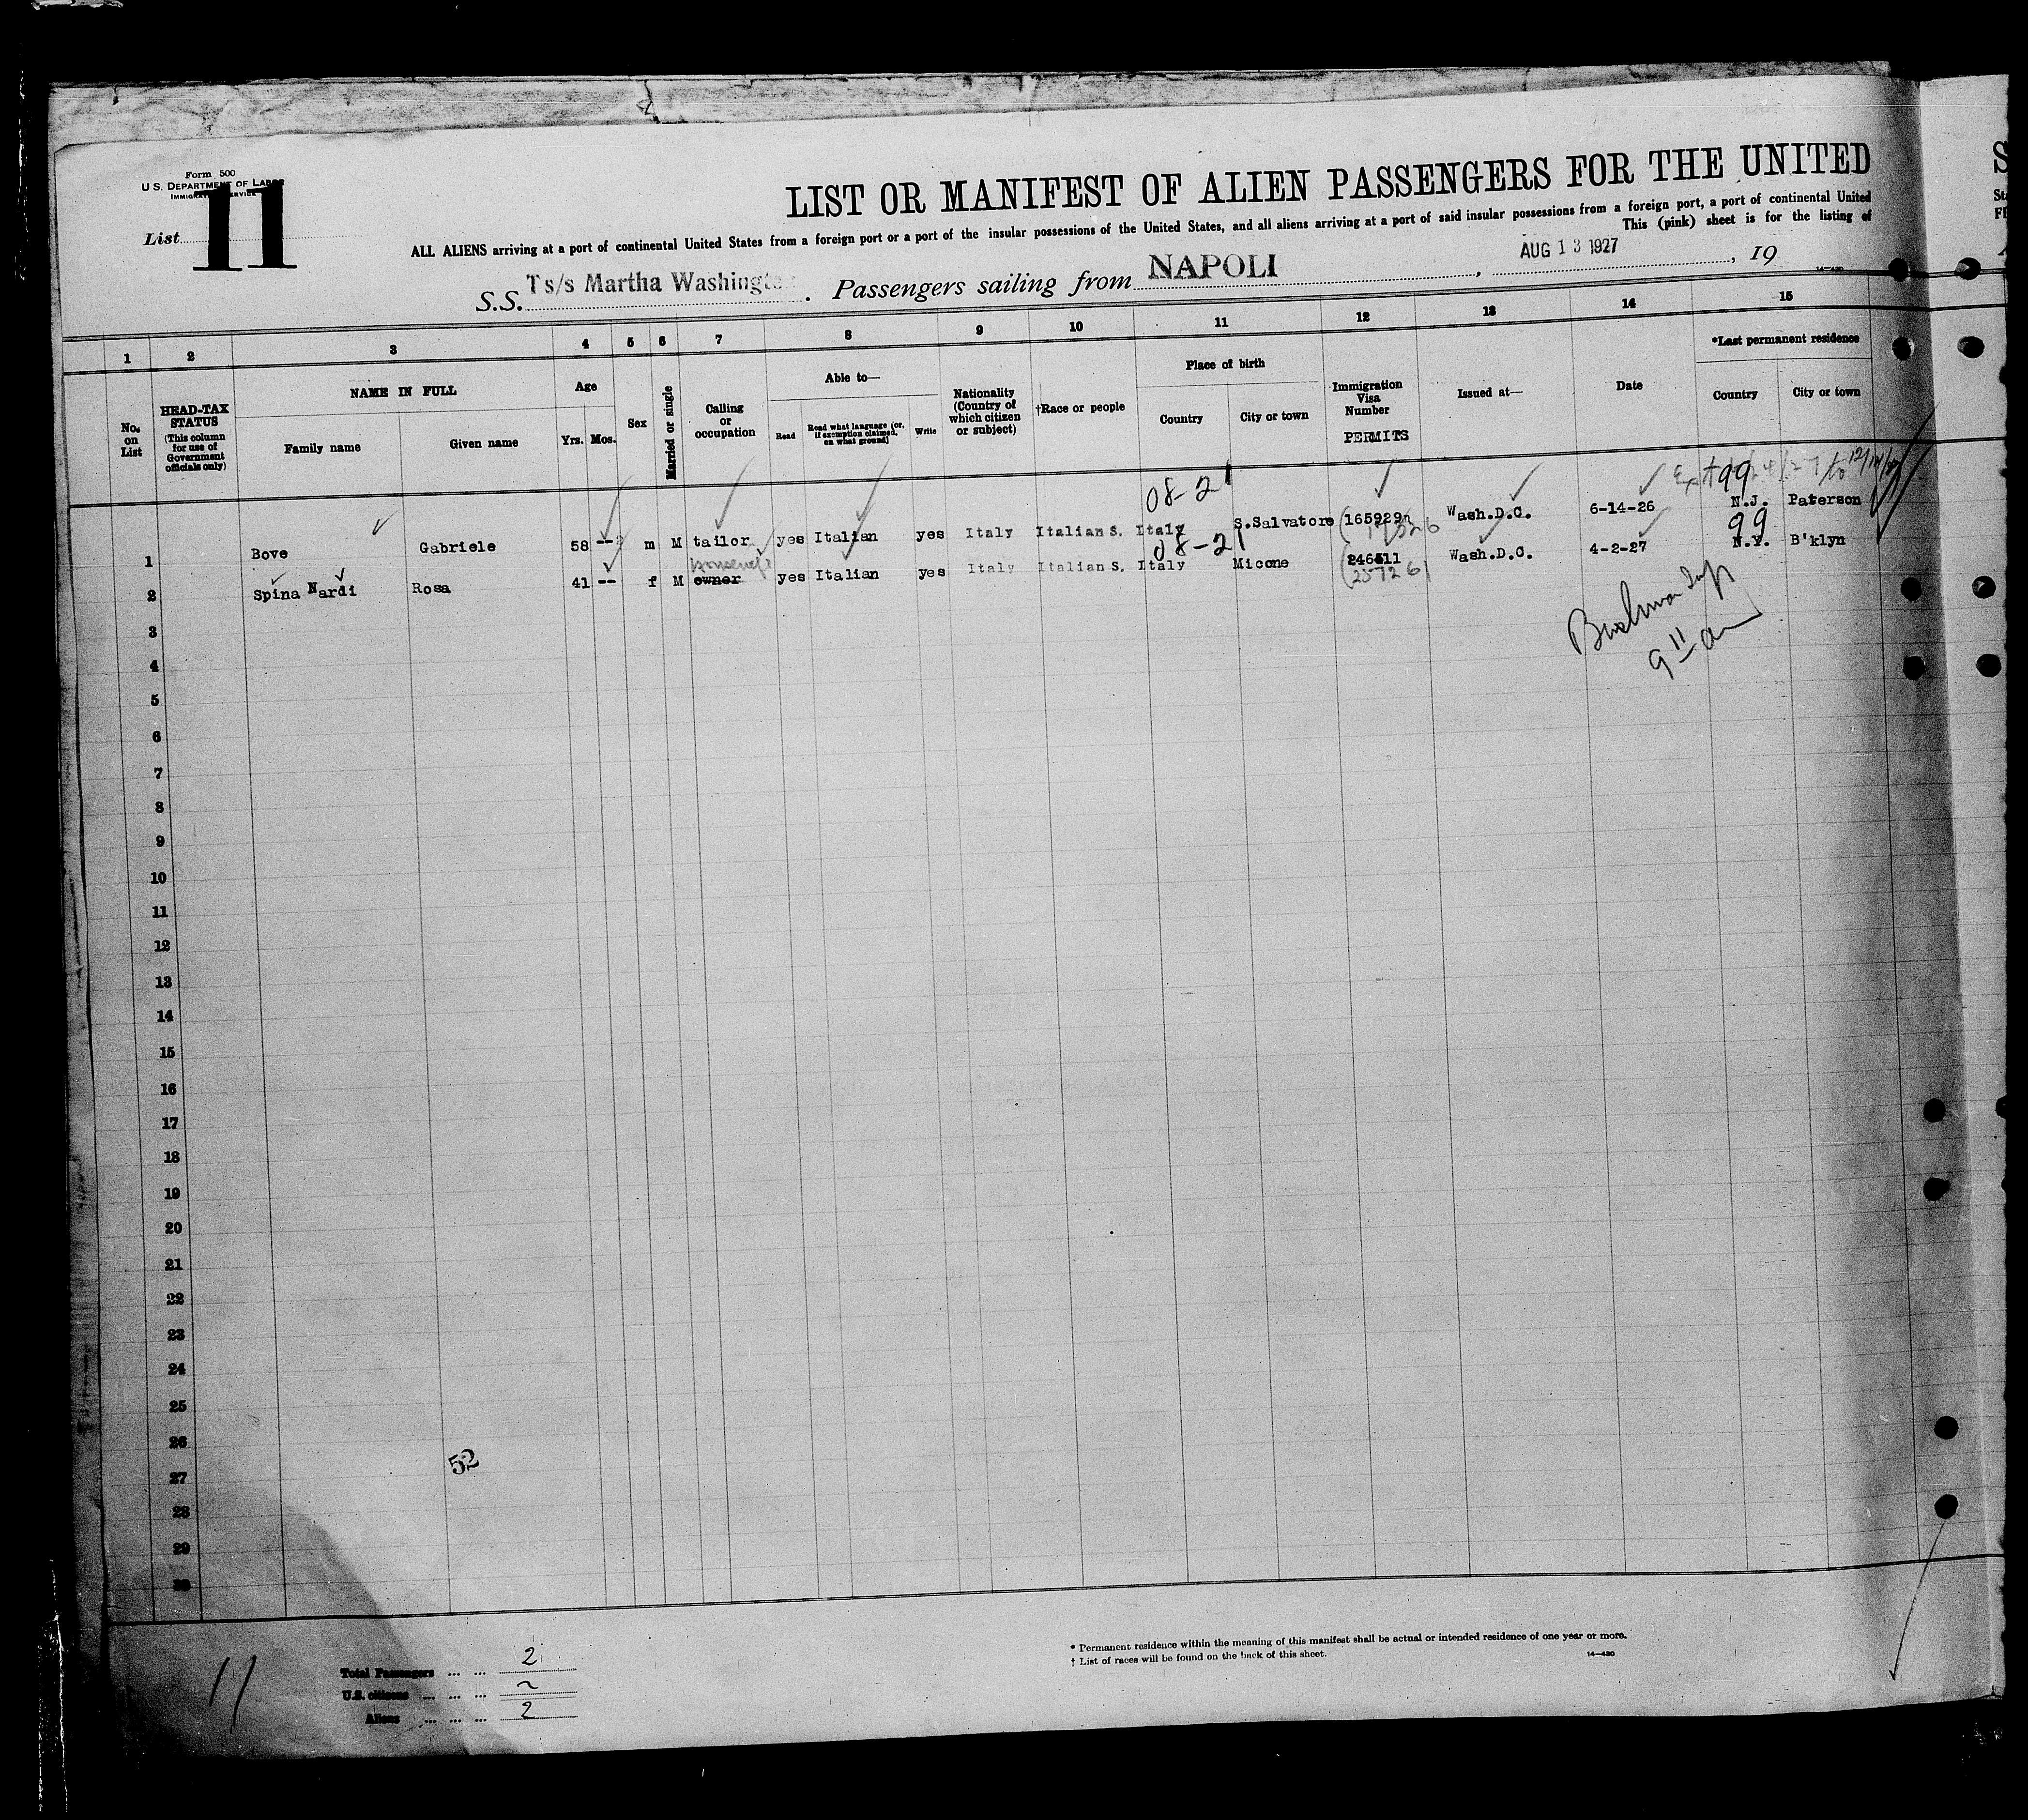 Form 500
U. S. DEPARTMENT OF LABOR
IMMIGRATION SERVICE
List 11
LIST OR MANIFEST OF ALIEN PASSENGERS FOR THE UNITED
ALL ALIENS arriving at a port of continental United States from a foreign port or a port of the insular possessions of the United States, and all aliens arriving at a port of said insular possessions from a foreign port, a port of continental United
This (pink) sheet is for the listing of
S.S. Ts/s Martha Washington. Passengers sailing from NAPOLI, AUG 13 1927, 19
14-480
1 2 3 4 5 6 7 8 9 10 11 12 13 14 15
No. on List
HEAD-TAX STATUS (This column for use of Government officials only)
NAME IN FULL
Family name Given name
Age
Yrs. Mos.
Sex
Married or single
Calling or occupation
Able to—
Read Read what language (or, if exemption claimed, on what ground) Write
Nationality (Country of which citizen or subject)
†Race or people
Place of birth
Country City or town
Immigration Visa Number
PERMITS
Issued at—
Date
*Last permanent residence
Country City or town
08-21 99
1 Bove Gabriele 58 -- m M tailor yes Italian yes Italy Italian S. Italy S.Salvatore 165929 Wash.D.C. 6-14-26 N.J. Paterson
08-21 99
2 Spina Nardi Rosa 41 -- f M owner yes Italian yes Italy Italian S. Italy Micone Wash.D.C. 4-2-27 N.Y. B'klyn
3
4
5
6
7
8
9
10
11
12
13
14
15
16
17
18
19
20
21
22
23
24
25
26
27
28
29
30
52
11
Total Passengers ... ... 2
U.S. citizens ... ... ... ~
Aliens ... ... ... 2
* Permanent residence within the meaning of this manifest shall be actual or intended residence of one year or more.
† List of races will be found on the back of this sheet.
14-480